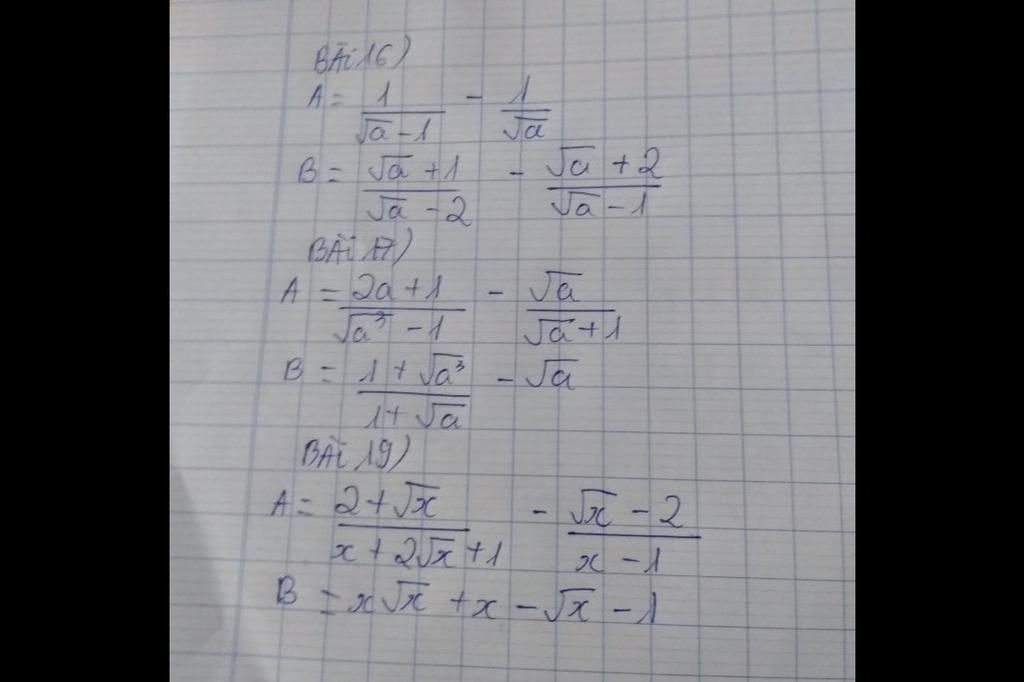 BÀi 16)
A = \frac{1}{\sqrt{a} - 1} - \frac{1}{\sqrt{a}}
B = \frac{\sqrt{a} + 1}{\sqrt{a} - 2} - \frac{\sqrt{a} + 2}{\sqrt{a} - 1}
BÀi 17)
A = \frac{2a + 1}{\sqrt{a^3} - 1} - \frac{\sqrt{a}}{\sqrt{a} + 1}
B = \frac{1 + \sqrt{a^3}}{1 + \sqrt{a}} - \sqrt{a}
BÀi 19)
A = \frac{2 + \sqrt{x}}{x + 2\sqrt{x} + 1} - \frac{\sqrt{x} - 2}{x - 1}
B = x\sqrt{x} + x - \sqrt{x} - 1